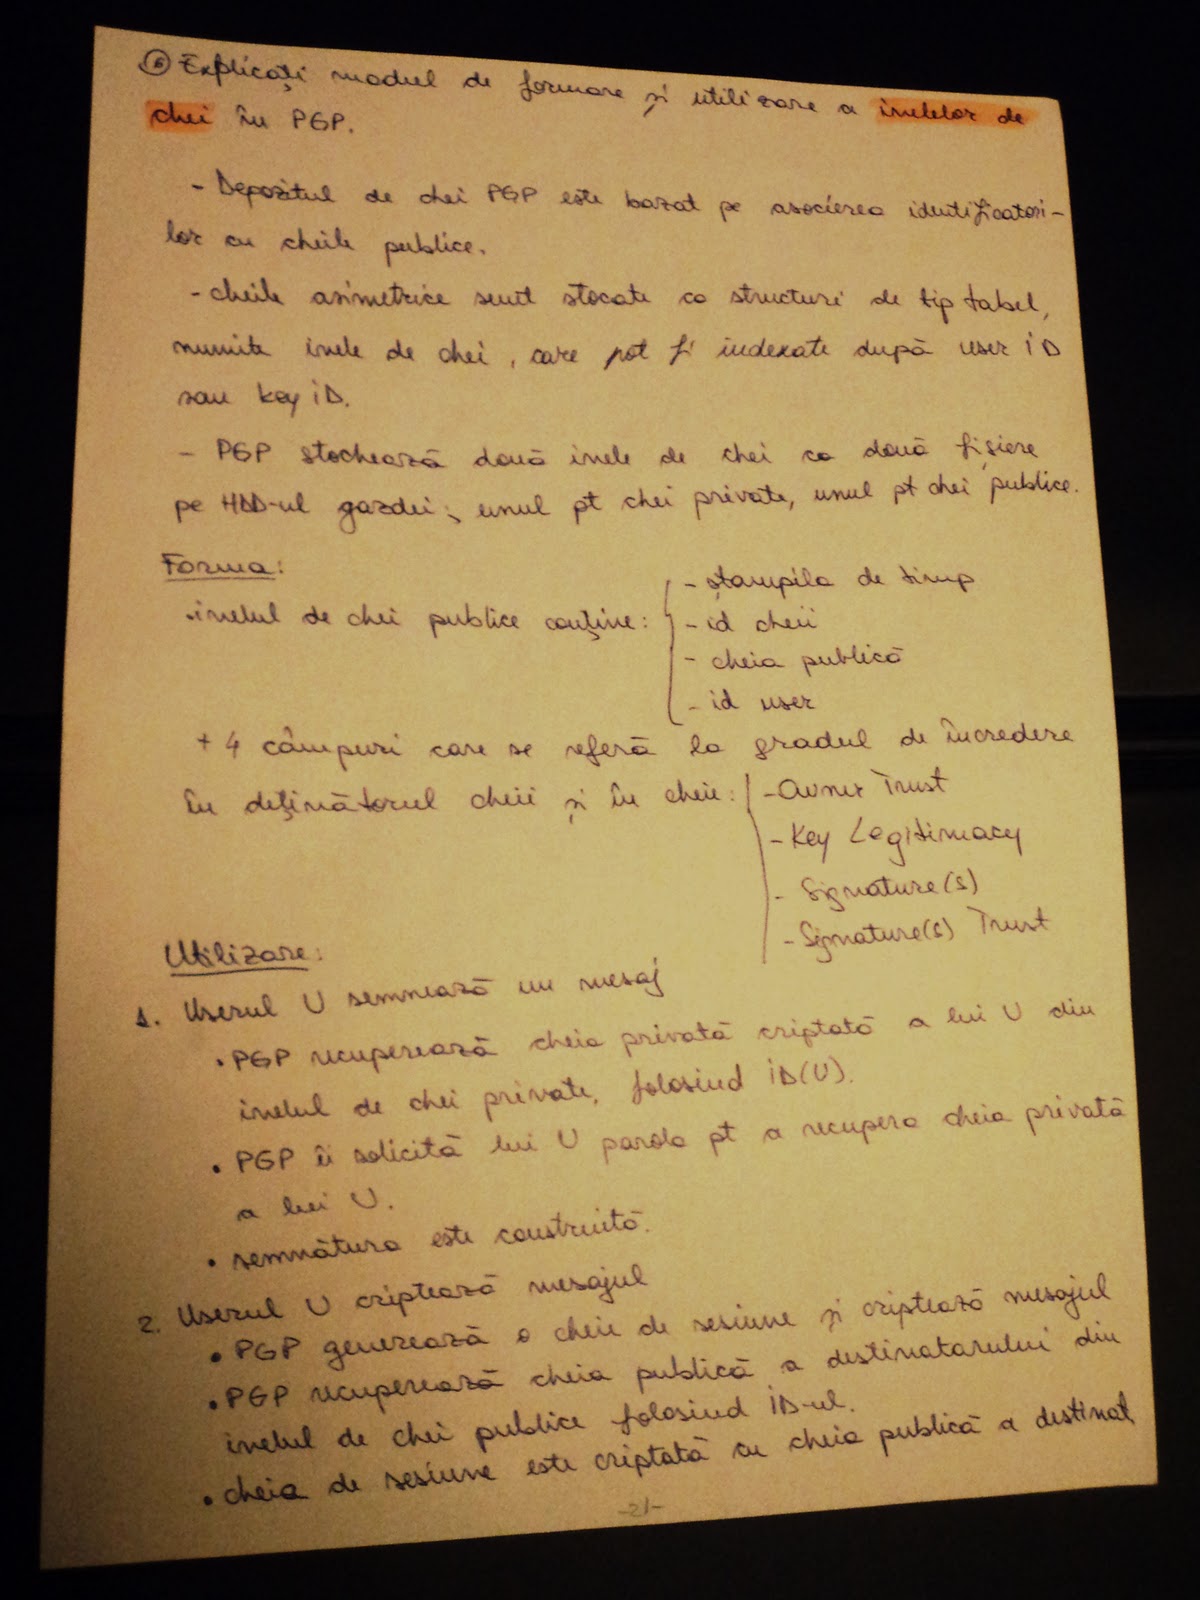 ⑥ Explicați modul de formare și utilizare a inelelor de
chei în PGP.
- Depozitul de chei PGP este bazat pe asocierea identificatori-
lor cu cheile publice.
- cheile asimetrice sunt stocate ca structuri de tip tabel,
numite inele de chei, care pot fi indexate după user iD
sau key iD.
- PGP stochează două inele de chei ca două fișiere
pe HDD-ul gazdei; unul pt chei private, unul pt chei publice.
Forma:
• inelul de chei publice conține:
- ștampila de timp
- id cheii
- cheia publică
- id user
+ 4 câmpuri care se referă la gradul de încredere
în deținătorul cheii și în cheie:
- Owner Trust
- Key Legitimacy
- Signature(s)
- Signature(s) Trust
Utilizare:
1. Userul U semnează un mesaj
• PGP recuperează cheia privată criptată a lui U din
inelul de chei private, folosind iD(U).
• PGP îi solicită lui U parola pt a recupera cheia privată
a lui U.
• semnătura este construită.
2. Userul U criptează mesajul
• PGP generează o cheie de sesiune și criptează mesajul
• PGP recuperează cheia publică a destinatarului din
inelul de chei publice folosind iD-ul.
• cheia de sesiune este criptată cu cheia publică a destinat.
-21-